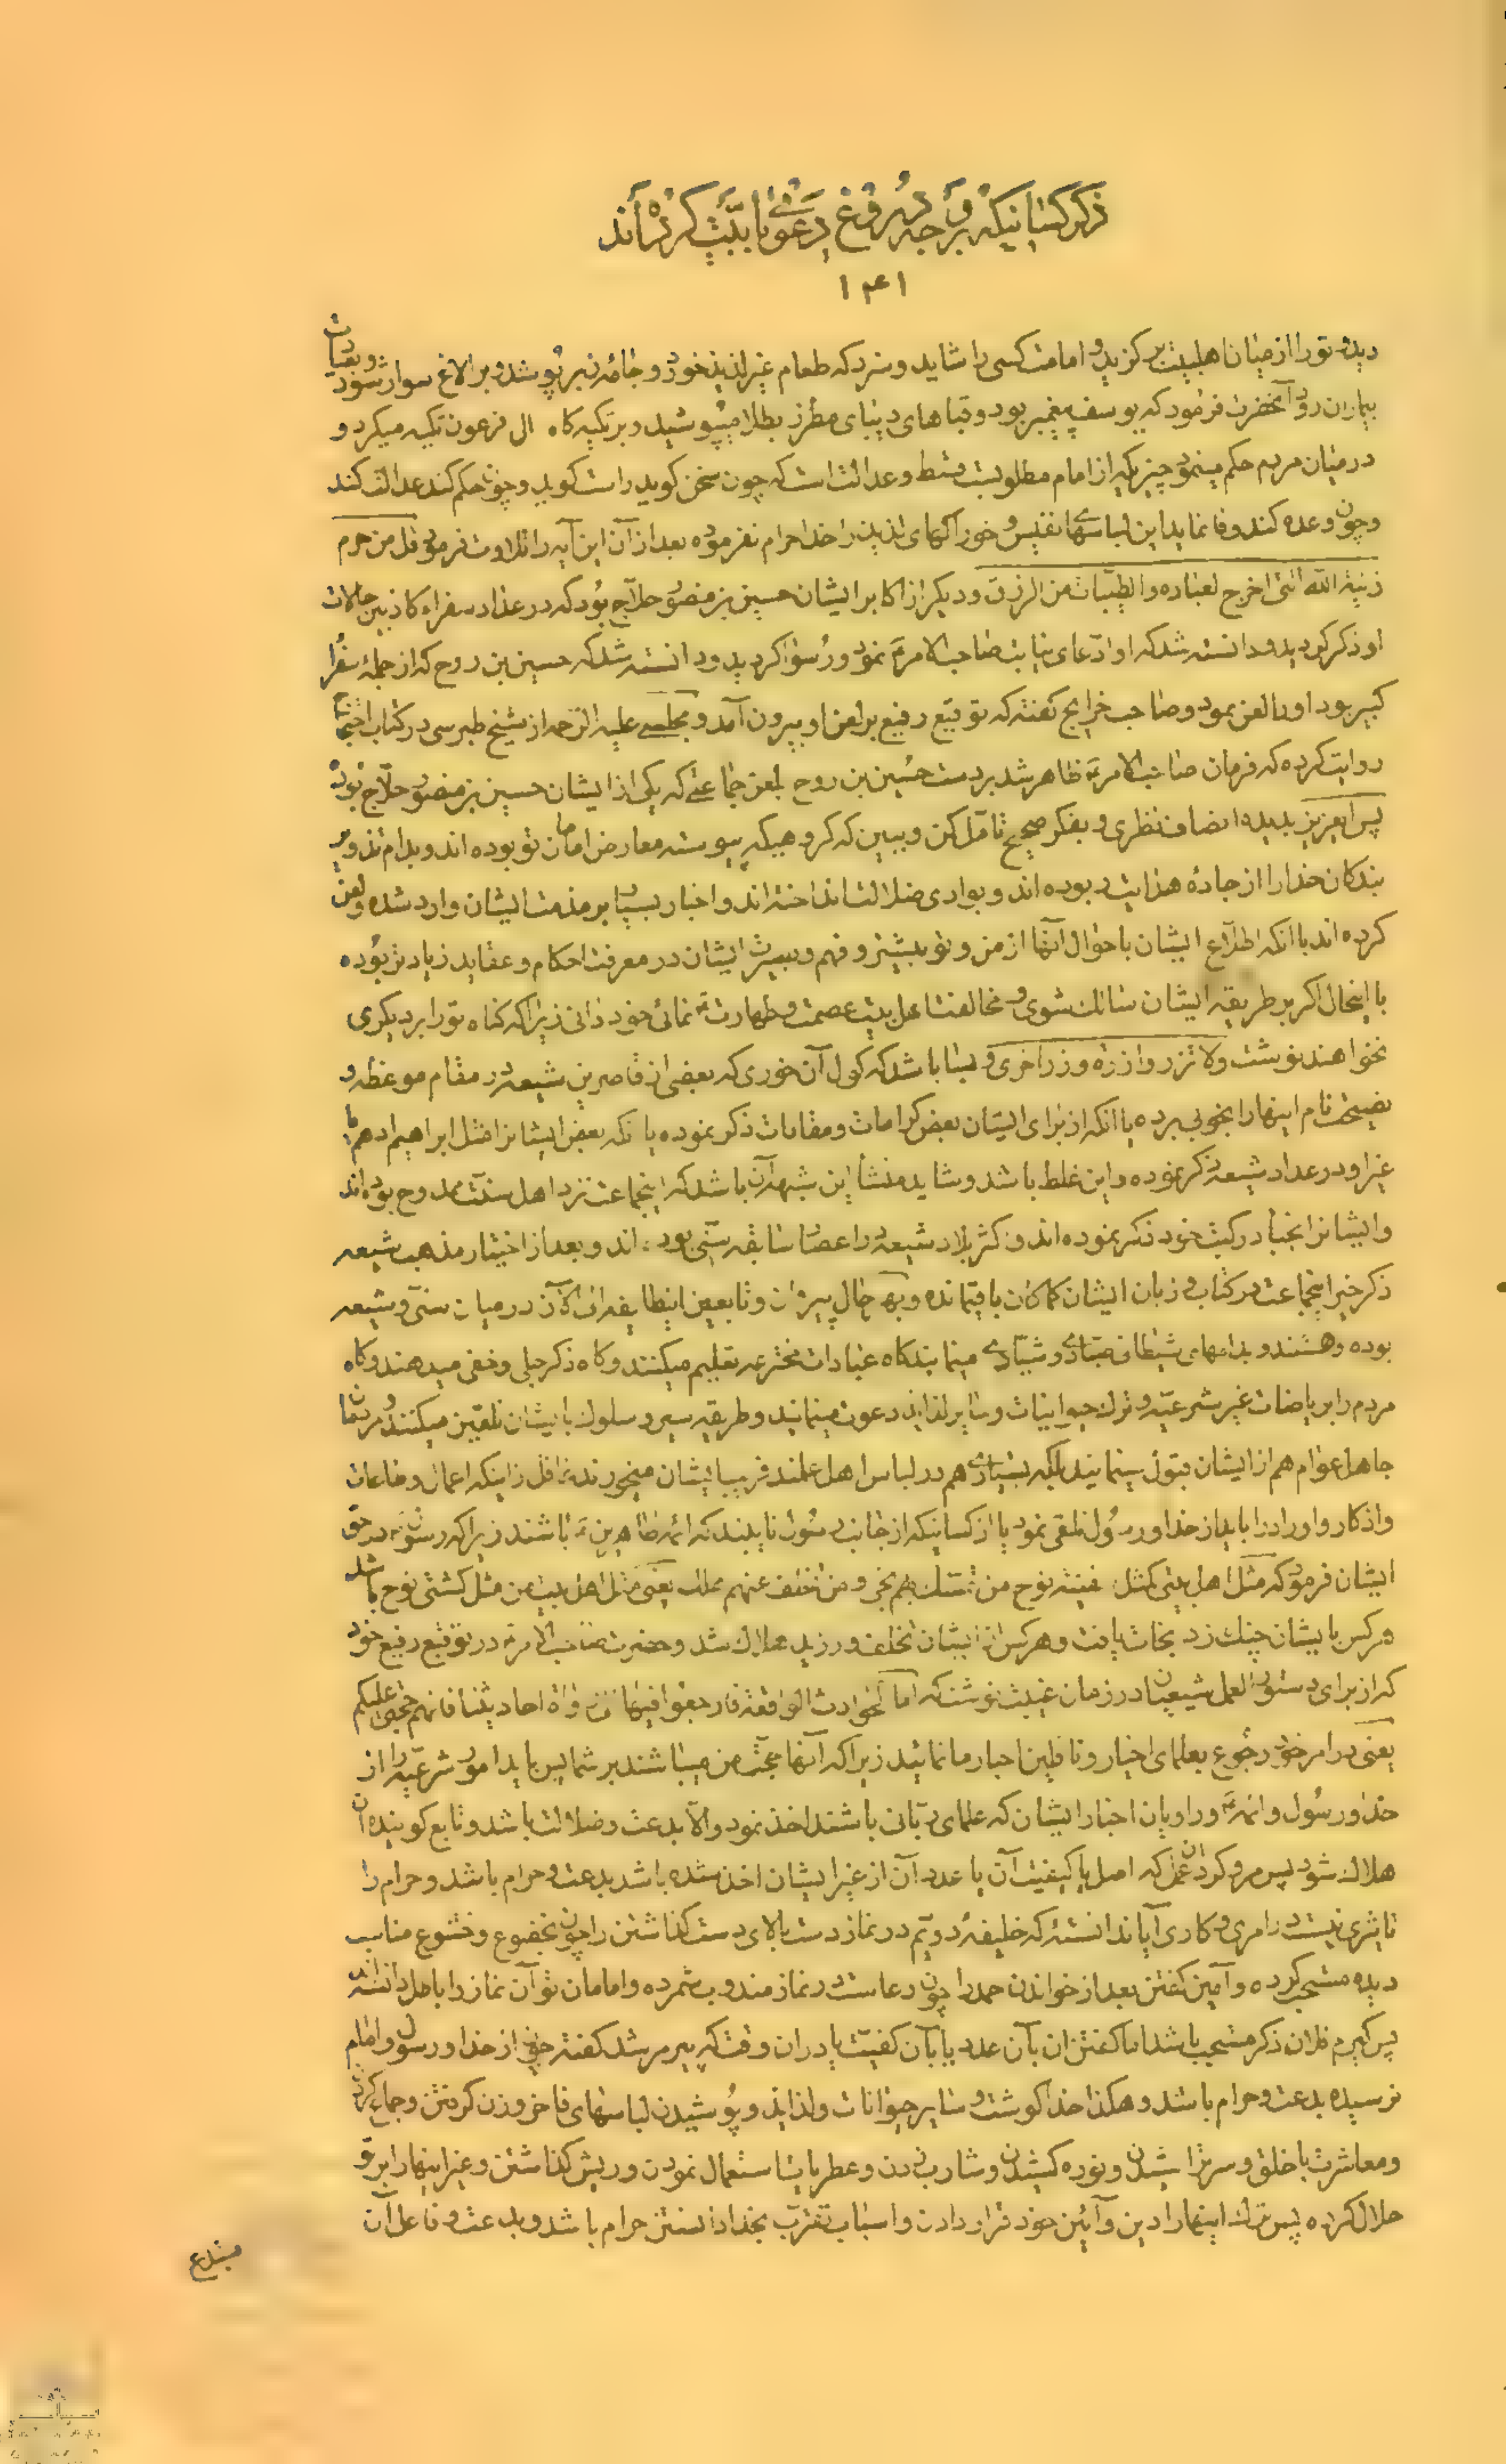 ذکر کسانیکه بر وجه دروغ دعوی بابیّت کرده‌اند
۱۴۱
دیده تو را از میان اهلبیت برکزید و امامت کسی را شاید و سزد که طعام غیر لذیذ خورد و جامهٔ زبر پوشد و بر الاغ سوار شود و بعیادت
بیماران رود آنحضرت فرمود که یوسف پیغمبر بود و قباهای دیبای مطرز بطلا میپوشید و بر تکیه کاه ال فرعون تکیه میکرد و
در میان مردم حکم مینمود چیزیکه از امام مطلوبست قسط و عدالت است که چون سخن کوید راست کوید و چون حکم کند عدالت کند
و چون وعده کند وفا نماید این لباسهای نفیس و خوراکهای لذیذ را خدا حرام نفرموده بعد از آن این آیه را تلاوت فرمود قل من حرم
زینة الله التی اخرج لعباده والطیّبات من الرزق و دیکر از اکابر ایشان حسین بن منصور حلاّج بود که در عداد سفراء کاذبین حالات
او ذکر کردید و دانسته شد که او ادّعای نیابت صاحب الامر نمود و رسوا کردید و دانسته شد که حسین بن روح که از جملهٔ سفرا
کبیر بود او را لعن نمود و صاحب خرایج کفته که توقیع رفیع بر لعن او بیرون آمد و مجلسی علیه الرّحمه از شیخ طبرسی در کتاب احتجاج
روایت کرده که فرمان صاحب الامر ظاهر شد بر دست حسین بن روح بلعن جماعتی که یکی از ایشان حسین بن منصور حلّاج بود
پس ایعزیز بدیده انصاف نظری و بفکر صحیح تامّل کن و ببین که کروهیکه پیوسته معارض امامان تو بوده اند و بدام تزویر
بندکان خدا را از جادهٔ هدایت ربوده اند و بوادی ضلالت انداخته اند و اخبار بسیار بر مذمت ایشان وارد شده و لعن
کرده اند با آنکه اطلاّع ایشان باحوال آنها از من و تو بیشتر و فهم و بصیرت ایشان در معرفت احکام و عقاید زیادتر بوده
با اینحال اکر بر طریقه ایشان سالك شوی و مخالفت اهل بیت عصمت و طهارت نمائی خود دانی زیرا که کناه تو را بر دیکری
نخواهند نوشت ولا تزر وازرة وزر اخری و مبادا باشد که کول آن خوری که بعضی از قاصرین شیعه در مقام موعظه و
نصیحت نام اینها را بخوبی برده یا آنکه از برای ایشان بعض کرامات و مقامات ذکر نموده یا آنکه بعض ایشانرا مثل ابراهیم ادهم یا
غیر او در عداد شیعه ذکر نموده و این غلط باشد و شاید منشأ این شبهه آن باشد که اینجماعت نزد اهل سنّت ممدوح بوده اند
و ایشانرا بخیر در کتب خود ذکر نموده اند و اکثر بلاد شیعه در اعصار سابقه سنّی بوده اند و بعد از اختیار مذهب شیعه
ذکر خیر اینجماعت در کتاب و زبان ایشان کما کان باقیمانده و بهر حال پیروان و تابعین اینطایفه الی الآن در میان سنّی و شیعه
بوده و هستند و بدامهای شیطانی صیّادی و شیّادی مینمایند کاه عبادات مخترعه تعلیم میکنند و کاه ذکر جلی و خفی میدهند و کاه
مردم را بریاضات غیر شرعیّه و ترك حیوانیات و سایر لذایذ دعوت مینمایند و طریقه سیر و سلوك بایشان تلقین میکنند و مردمان
جاهل عوام هم از ایشان قبول مینمایند بلکه بسیاری هم در لباس اهل علمند فریب ایشان میخورند غافل از اینکه اعمال و طاعات
و اذکار و اوراد را باید از خدا و رسول تلقی نمود یا از کسانیکه از جانب رسول نایبند که ائمه طاهرین باشند زیرا که رسول در حق
ایشان فرمود که مثل اهل بیتی کمثل سفینة نوح من تمسّك بهم نجی و من تخلف عنهم هلك یعنی مثل اهل بیت من مثل کشتی نوح باشد
هرکس بایشان چنك زد نجات یافت و هرکس از ایشان تخلف ورزید هلاك شد و حضرت صاحب الامر در توقیع رفیع خود
که از برای دستور العمل شیعیان در زمان غیبت نوشت که اما الحوادث الواقعة فارجعوا فیها الی رواة احادیثنا فانهم حجتی علیکم
یعنی در امر خود رجوع بعلمای اخیار و ناقلین اخبار ما نمائید زیرا که آنها حجّت من میباشند بر شما پس باید امور شرعیّه را از
خدا و رسول و ائمه و راویان اخبار ایشان که علمای ربّانی باشند اخذ نمود و الّا بدعت و ضلالت باشد و تابع کوینده آن
هلاك شود پس هر ذکر و عملی که اصل یا کیفیت آن یا عدد آن از غیر ایشان اخذ شده باشد بدعت و حرام باشد و حرام را
تاثیری نیست در امری و کاری آیا ندانستهٔ که خلیفهٔ دویم در نماز دست بالای دست کذاشتن را چون بخضوع و خشوع مناسب
دیده مستحب کرده و آمین کفتن بعد از خواندن حمد را چون دعا است در نماز مندوب شمرده و امامان تو آن نماز را باطل دانسته اند
پس کیرم فلان ذکر مستحب باشد اما کفتن آن بآن عدد یا بآن کیفیّت یا در آن وقت که پیر مرشد کفته چون از خدا و رسول و امام
نرسیده بدعت و حرام باشد و هکذا خدا کوشت و سایر حیوانات و لذایذ و پوشیدن لباسهای فاخر و زن کرفتن و جماع کردن
و معاشرت با خلق و سر تراشیدن و نوره کشیدن و شارب زدن و عطریات استعمال نمودن و ریش کذاشتن و غیر اینها را بر تو
حلال کرده پس ترك اینها را دین و آئین خود قرار دادن و اسباب تقرّب بخدا دانستن حرام باشد و بدعت و فاعل آن
مبتدع